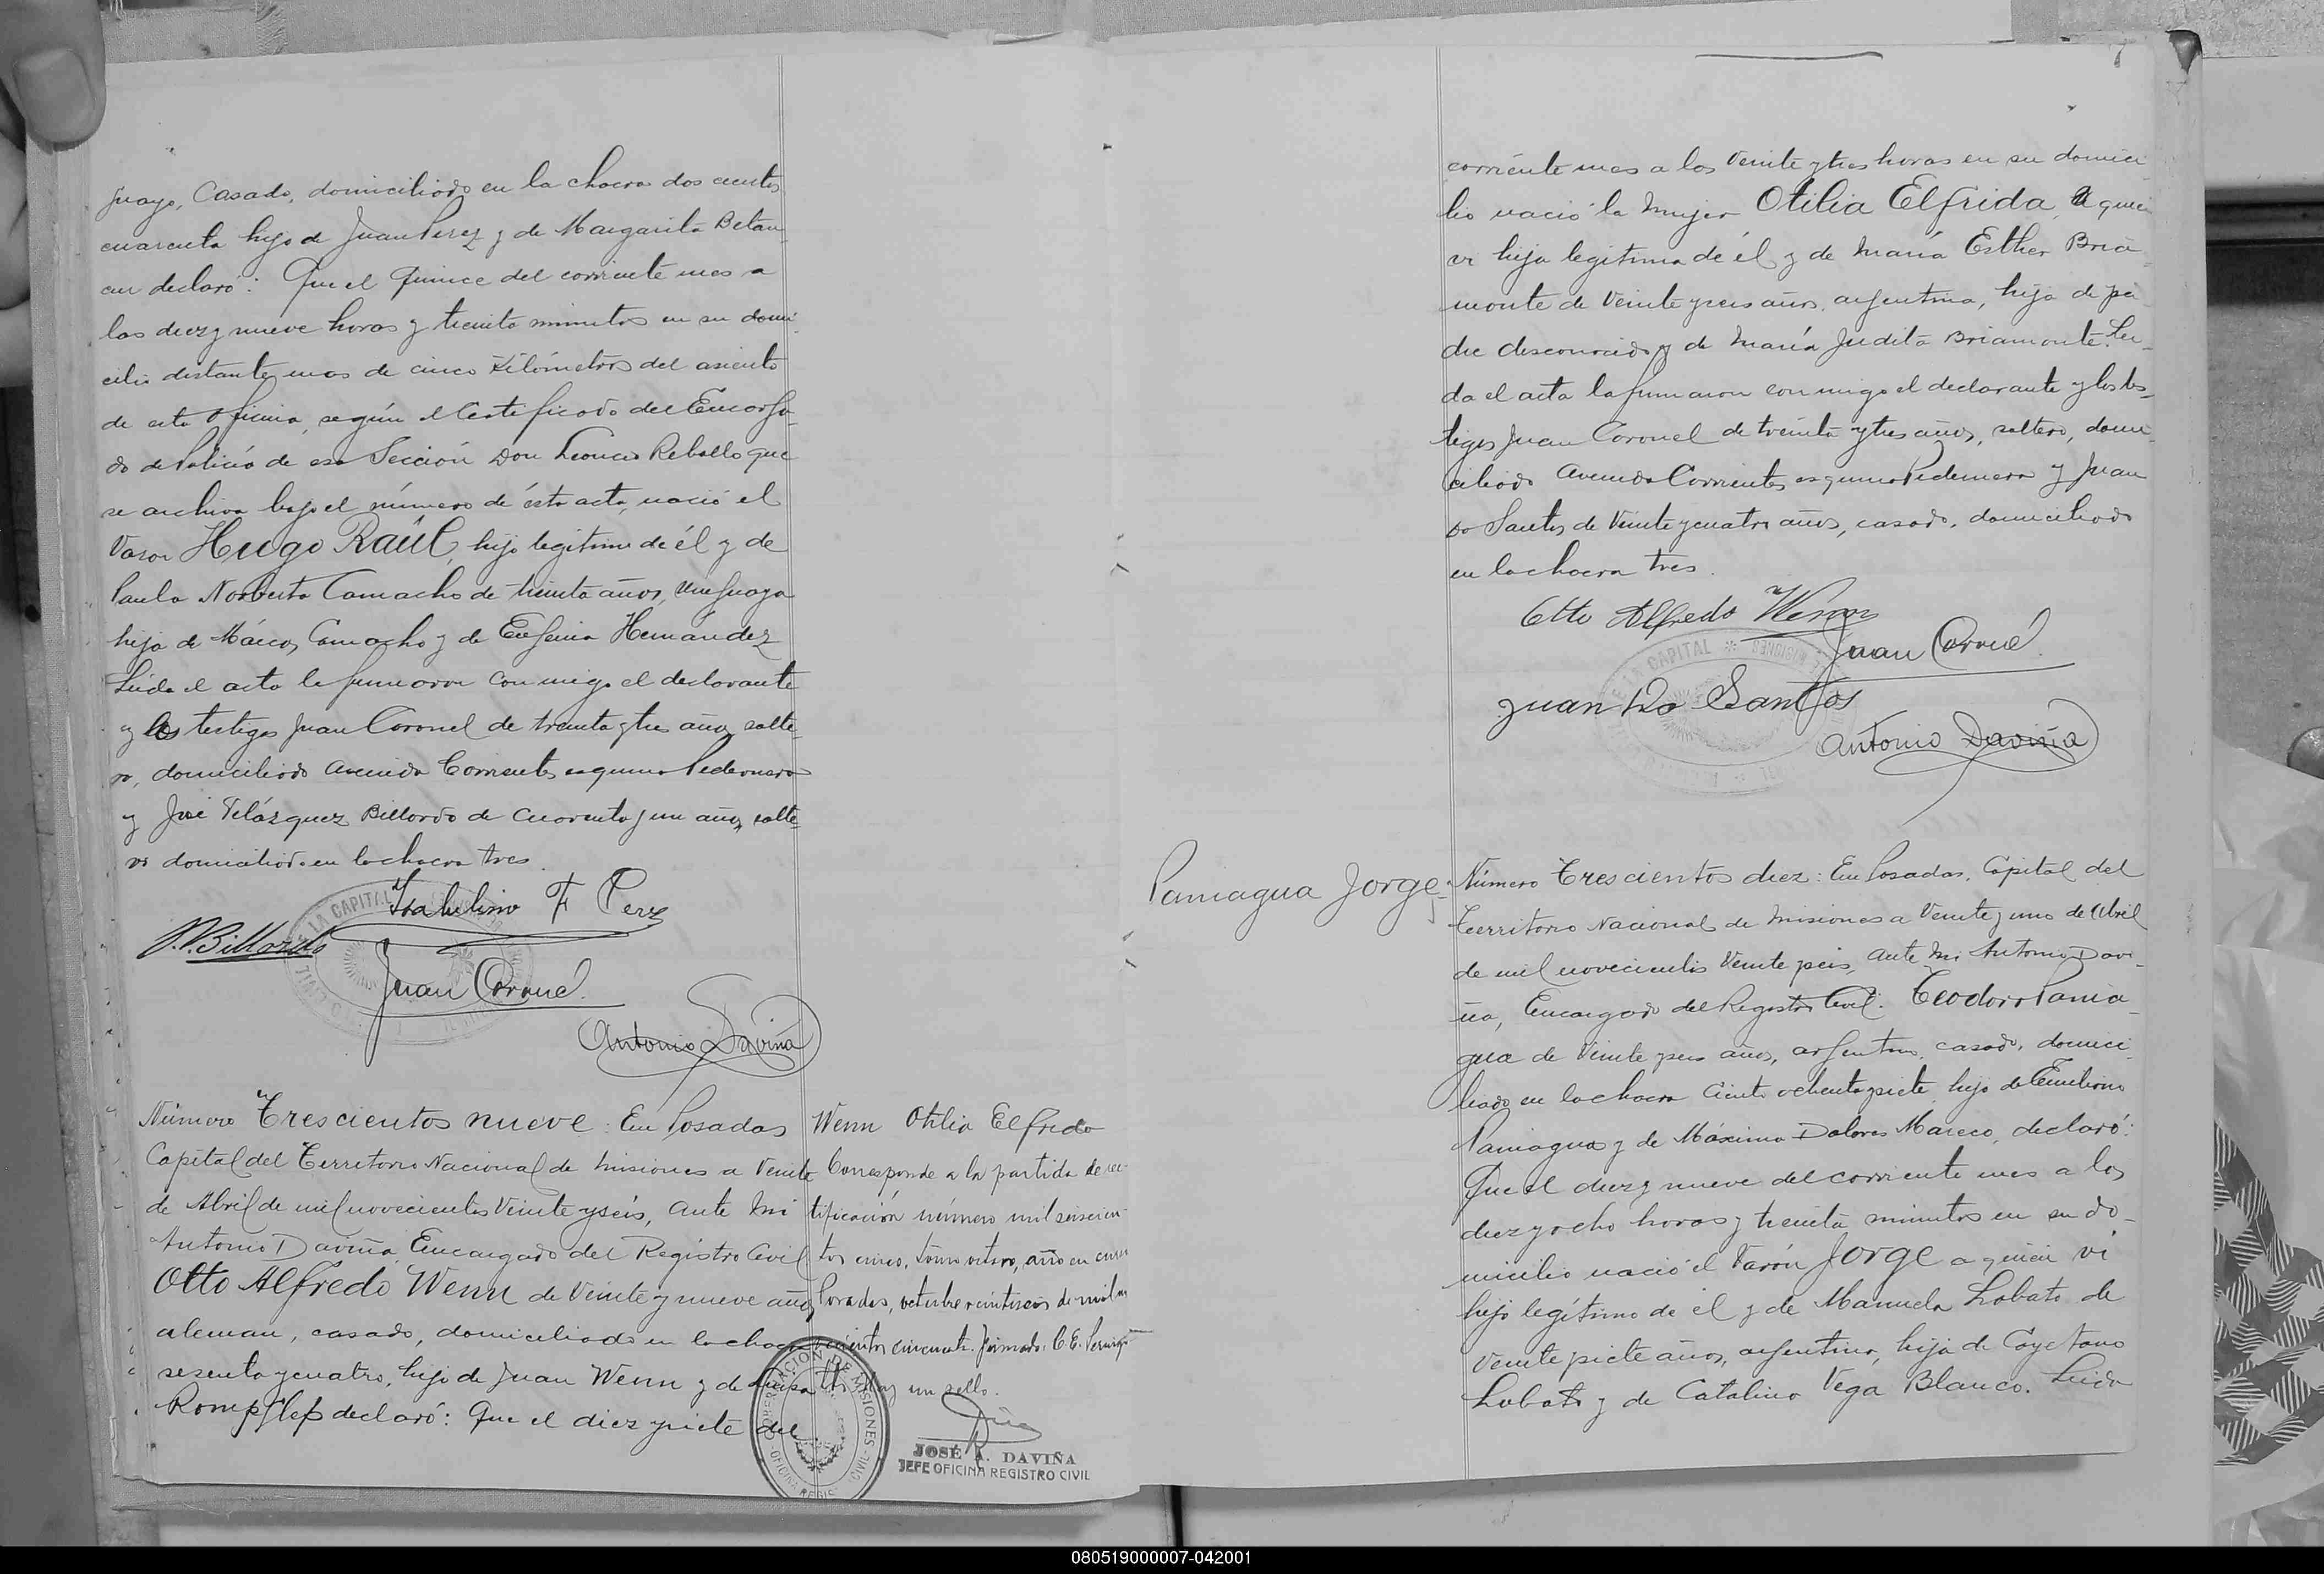 guayo, Casado, domiciliado en la chacra dos cientos
cuarenta hijo de Juan Perez y de Margarita Betan-
cur declaró: Que el Quince del corriente mes a
las diez y nueve horas y treinta minutos en su domi-
cilio distante mas de cinco kilómetros del asiento
de esta oficina, según el Certificado del Encarga-
do de Policía de esa Sección Don Leoncio Rebollo que
se archiva bajo el número de ésta acta, nació el
Varon Hugo Raúl, hijo legítimo de él y de
Paula Norberta Camacho de treinta años, uruguaya
hija de Márcos Camacho y de Eugenia Hernández
Leida el acta la firmaron conmigo el declarante
y los testigos Juan Coronel de treinta y tres años, solte-
ro, domiciliado Avenida Corrientes esquina Pedernera
y José Velázquez Billordo de cuarenta y un años, solte-
ro domiciliado en la chacra tres.
F Perez
Billordo
Juan Coronel
Antonio Daviña
Número Trescientos nueve: En Posadas
Capital del Territorio Nacional de Misiones a Veinte
de Abril de mil novecientos Veinte y seis, ante mi
Antonio Daviña Encargado del Registro Civil
Otto Alfredo Wenn de Veinte y nueve años
aleman, casado, domiciliado en la chacra
sesenta y cuatro, hijo de Juan Wenn y de Luisa
declaró: Que el diez y siete del
Wenn Otilia Elfreda
Corresponde a la partida de rec-
tificación número mil seiscien-
tos cinco, tomo octavo, año en curso
Posadas, octubre veintiseis de mil no
vecientos cincuenta. Firmado: C.E.
Hay un sello.
GOBERNACION DE MISIONES
OFICINA REGIS CIVIL
JOSÉ A. DAVIÑA
JEFE OFICINA REGISTRO CIVIL
corriente mes a los Veinte y tres horas en su domici-
lio nació la mujer Otilia Elfrida, a quien
vi hija legítima de él y de María Esther Bria-
monte de Veinte y seis años, argentina, hija de pa-
dre desconocido y de María Judita Briamonte. Lei-
da el acta la firmaron conmigo el declarante y los tes-
tigos Juan Coronel de treinta y tres años, soltero, domi-
ciliado Avenida Corrientes esquina Pedernera y Juan
Do Santos de Veinte y cuatro años, casado, domiciliado
en la chacra tres.
Otto Alfredo Wenn
Juan Coronel
Juan Do Santos
Antonio Daviña
Paniagua Jorge
Número Trescientos diez: En Posadas, Capital del
Territorio Nacional de Misiones a Veinte y uno de Abril
de mil novecientos Veinte y seis, ante mi Antonio Davi-
ña, Encargado del Registro Civil: Teodoro Pania-
gua de Veinte y seis años, argentino, casado, domici-
liado en la chacra ciento ochenta y siete, hijo de Emiliano
Paniagua y de Máxima Dolores Mareco, declaró:
Que el diez y nueve del corriente mes a los
diez y ocho horas y treinta minutos en su do-
micilio nació el Varón Jorge a quien vi
hijo legítimo de él y de Manuela Lobato de
Veinte y siete años, argentina, hija de Cayetano
Lobato y de Catalina Vega Blanco. Leida
080519000007-042001